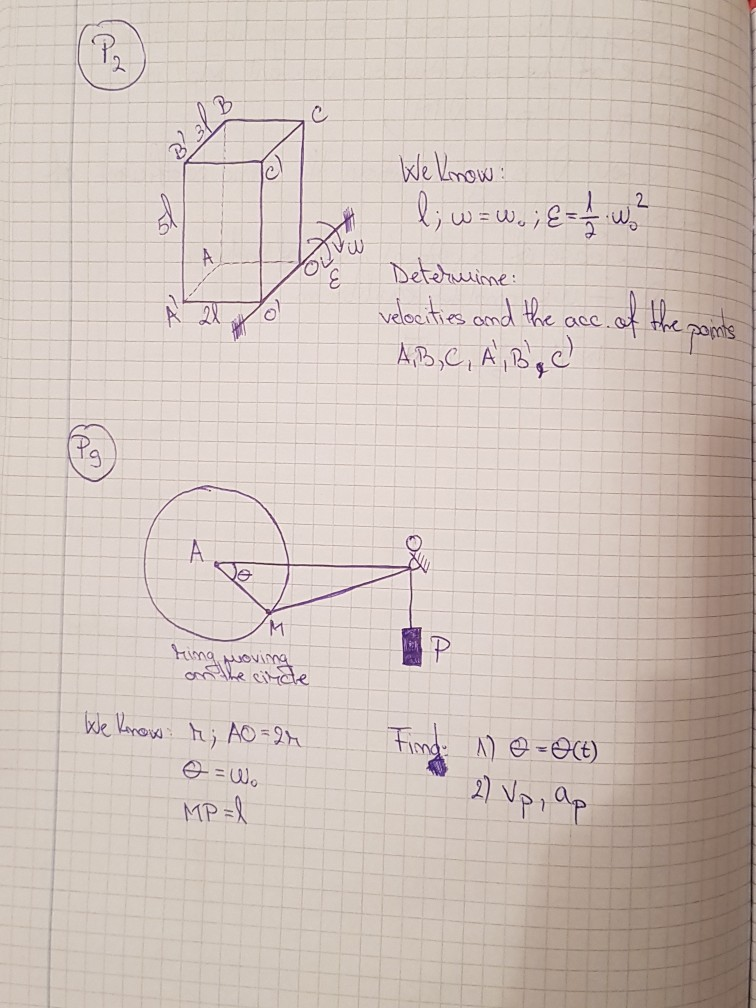 P2
B
3l
B'
C
C'
5l
A
A'
2l
O
O'
ω
ε
We know:
l; ω = ω₀; ε = 1/2 · ω₀²
Determine:
velocities and the acc. of the points
A, B, C, A', B', C'
P9
A
θ
O
M
P
ring moving
on the circle
We know: r; AO = 2r
θ = ω₀
MP = l
Find: 1) θ = θ(t)
2) Vp, ap